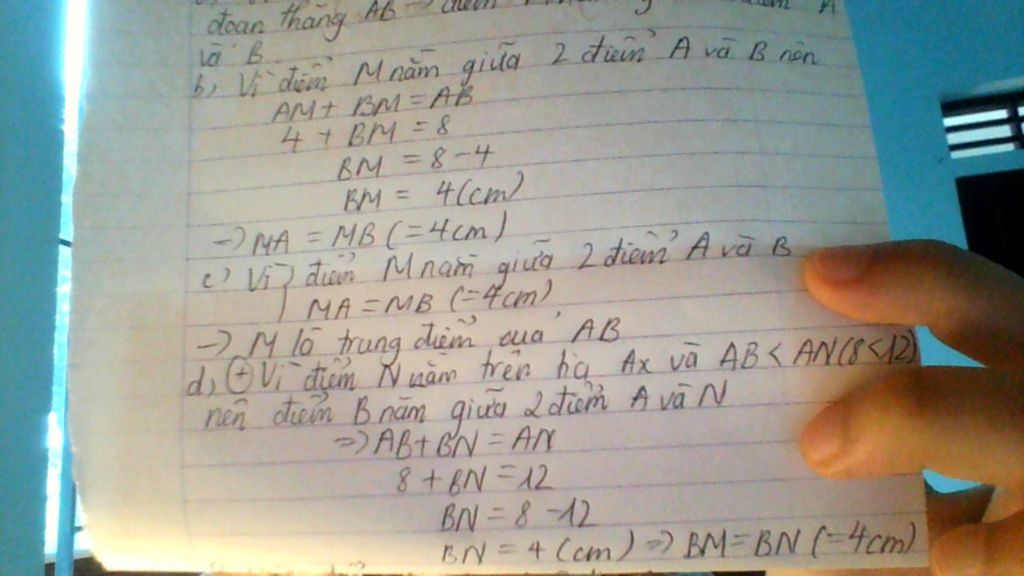 đoạn thẳng AB
và B
b, Vì điểm M nằm giữa 2 điểm A và B nên
AM + BM = AB
4 + BM = 8
BM = 8 - 4
BM = 4 (cm)
-> MA = MB (= 4cm)
c, Vì } điểm M nằm giữa 2 điểm A và B
MA = MB (= 4cm)
-> M là trung điểm của AB
d, (+) Vì điểm N nằm trên tia Ax và AB < AN (8 < 12)
nên điểm B nằm giữa 2 điểm A và N
=> AB + BN = AN
8 + BN = 12
BN = 8 - 12
BN = 4 (cm) => BM = BN (= 4cm)